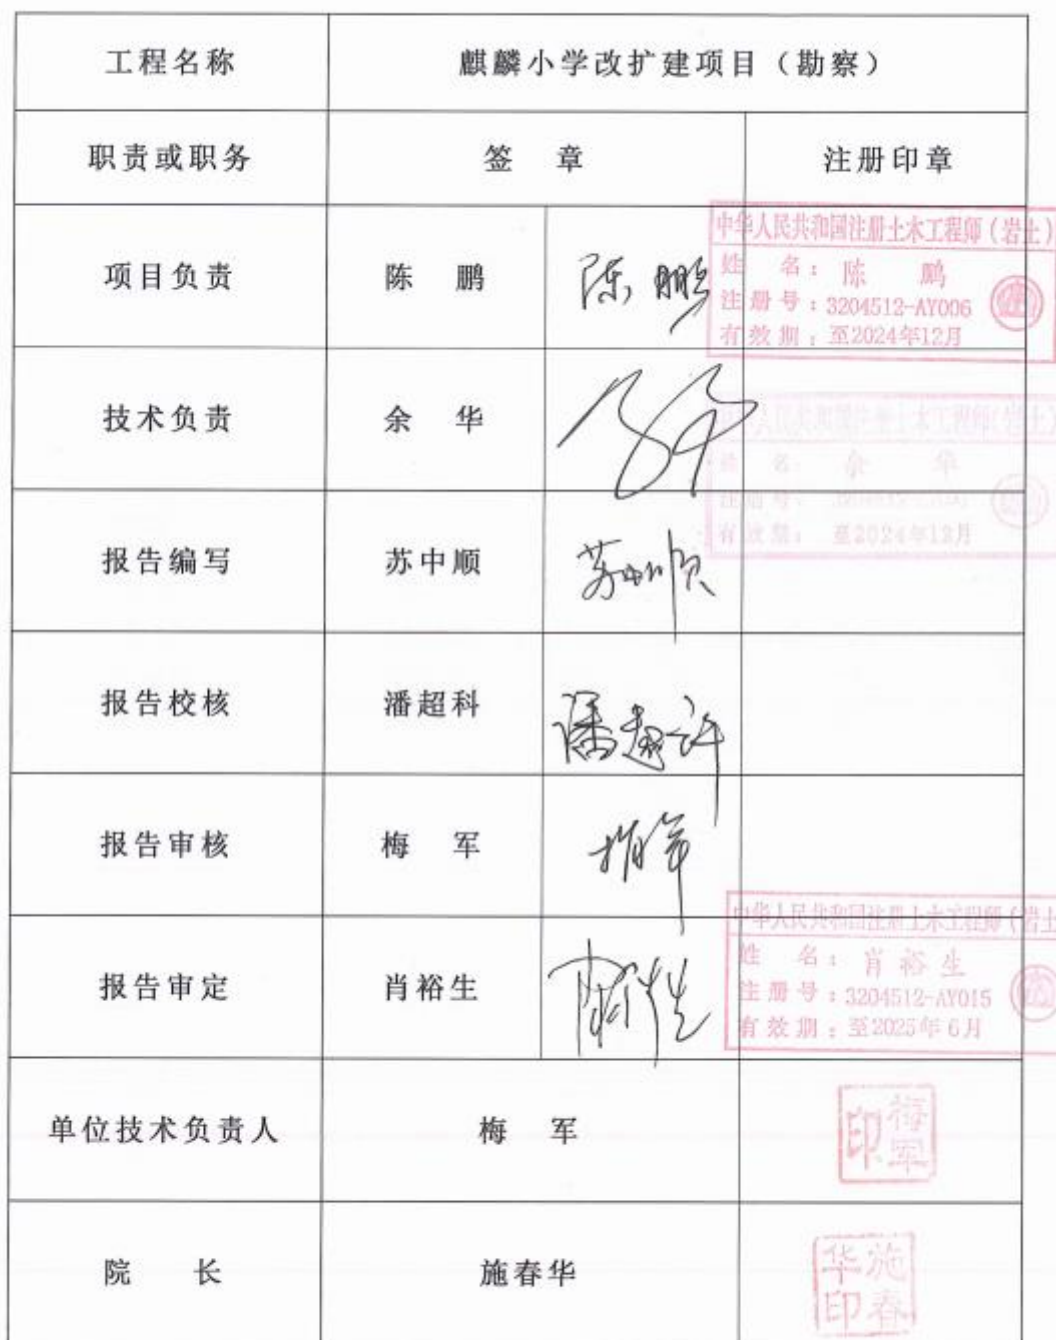 工程名称 麒麟小学改扩建项目（勘察）
职责或职务 签 章 注册印章
中华人民共和国注册土木工程师（岩土）
项目负责 陈 鹏 陈鹏 姓 名：陈 鹏
注册号：3204512-AY006
有效期：至2024年12月
技术负责 余 华 余华
中华人民共和国注册土木工程师（岩土）
姓 名：余 华
注册号：
有效期：至2024年12月
报告编写 苏中顺 苏中顺
报告校核 潘超科 潘超科
报告审核 梅 军 梅军
中华人民共和国注册土木工程师（岩土
报告审定 肖裕生 肖裕生 姓 名：肖裕生
注册号：3204512-AY015
有效期：至2025年6月
单位技术负责人 梅 军 梅军印
院 长 施春华 施春华印